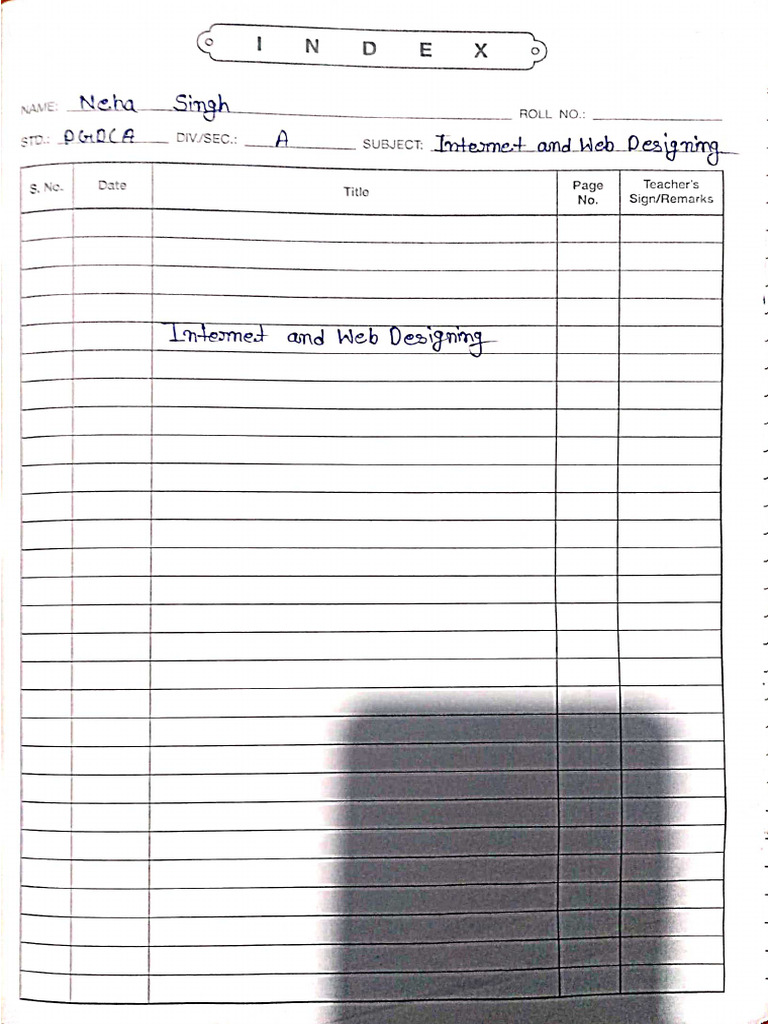 INDEX
NAME: Neha Singh ROLL NO.:
STD.: PGDCA DIV./SEC.: A SUBJECT: Internet and Web Designing
S. No. Date Title Page No. Teacher's Sign/Remarks
Internet and Web Designing